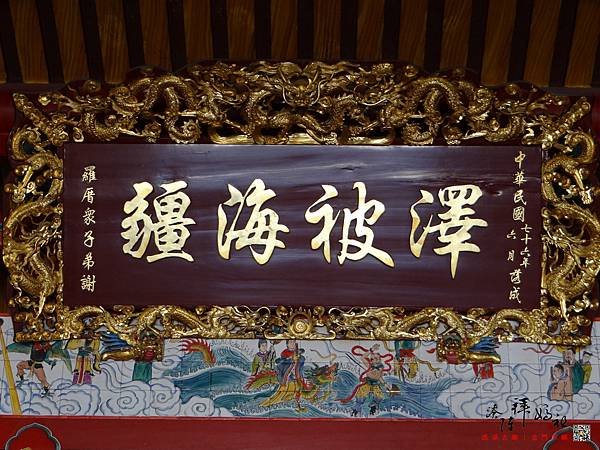 中華民國七十六年
六月落成
澤被海疆
羅厝眾子弟謝
拜媽祖